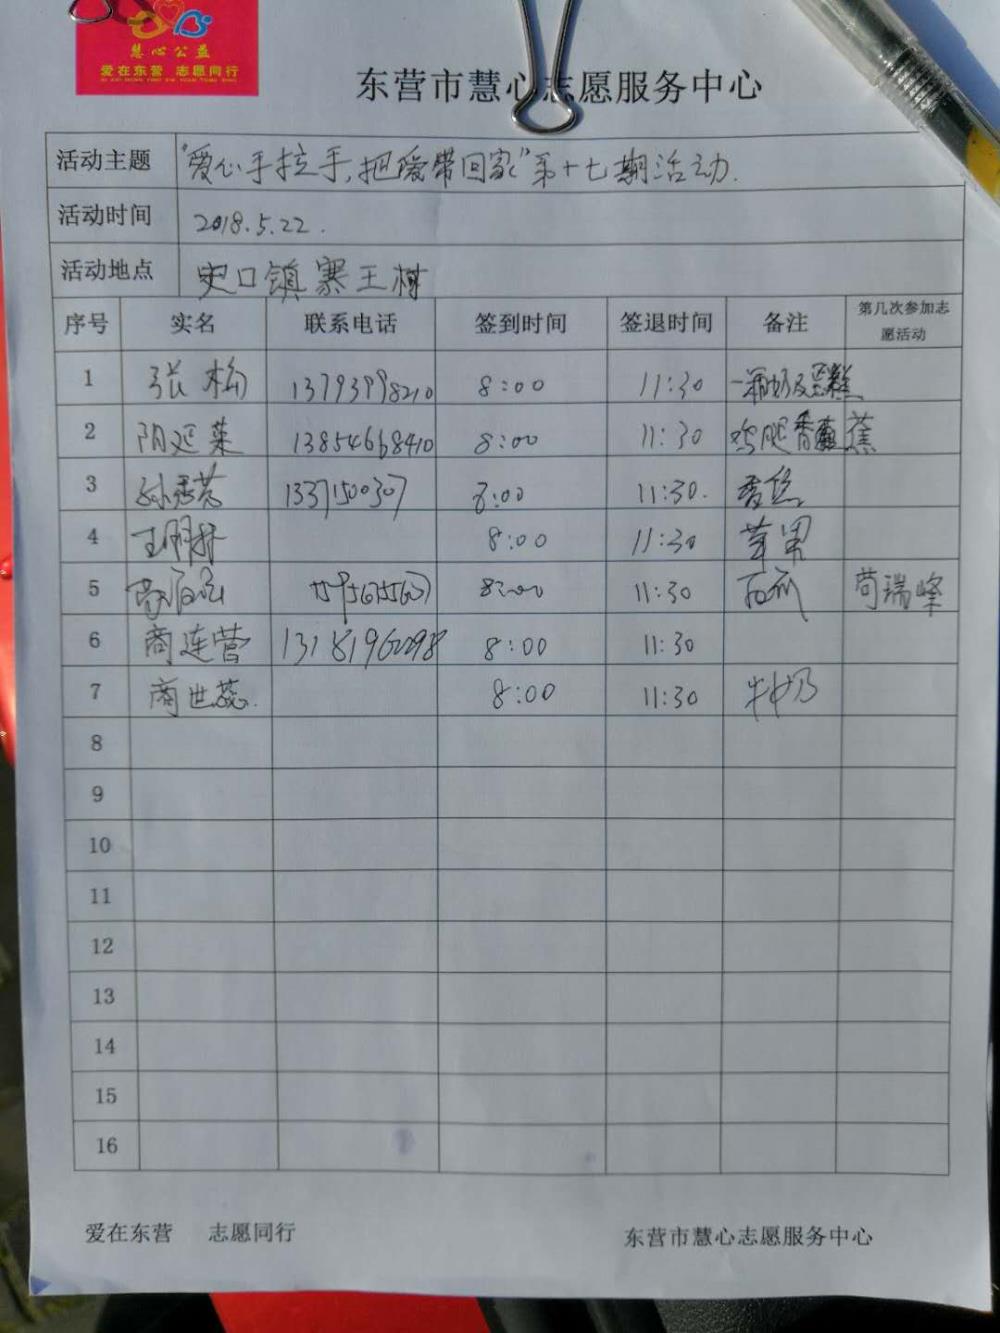 慧心公益
爱在东营 志愿同行
东营市慧心志愿服务中心
活动主题 "爱心手拉手,把爱带回家"第十七期活动.
活动时间 2018.5.22.
活动地点 史口镇寨王村
序号 实名 联系电话 签到时间 签退时间 备注 第几次参加志愿活动
1 张松 13793998210 8:00 11:30
2 阴延菜 13854668410 8:00 11:30 鸡腿香蕉
3 13371500307 8:00 11:30.
4 8:00 11:30 苹果
5 8:00 11:30 苟瑞峰
6 商连营 13181962298 8:00 11:30
7 商世蕊. 8:00 11:30 牛奶
8
9
10
11
12
13
14
15
16
爱在东营 志愿同行 东营市慧心志愿服务中心